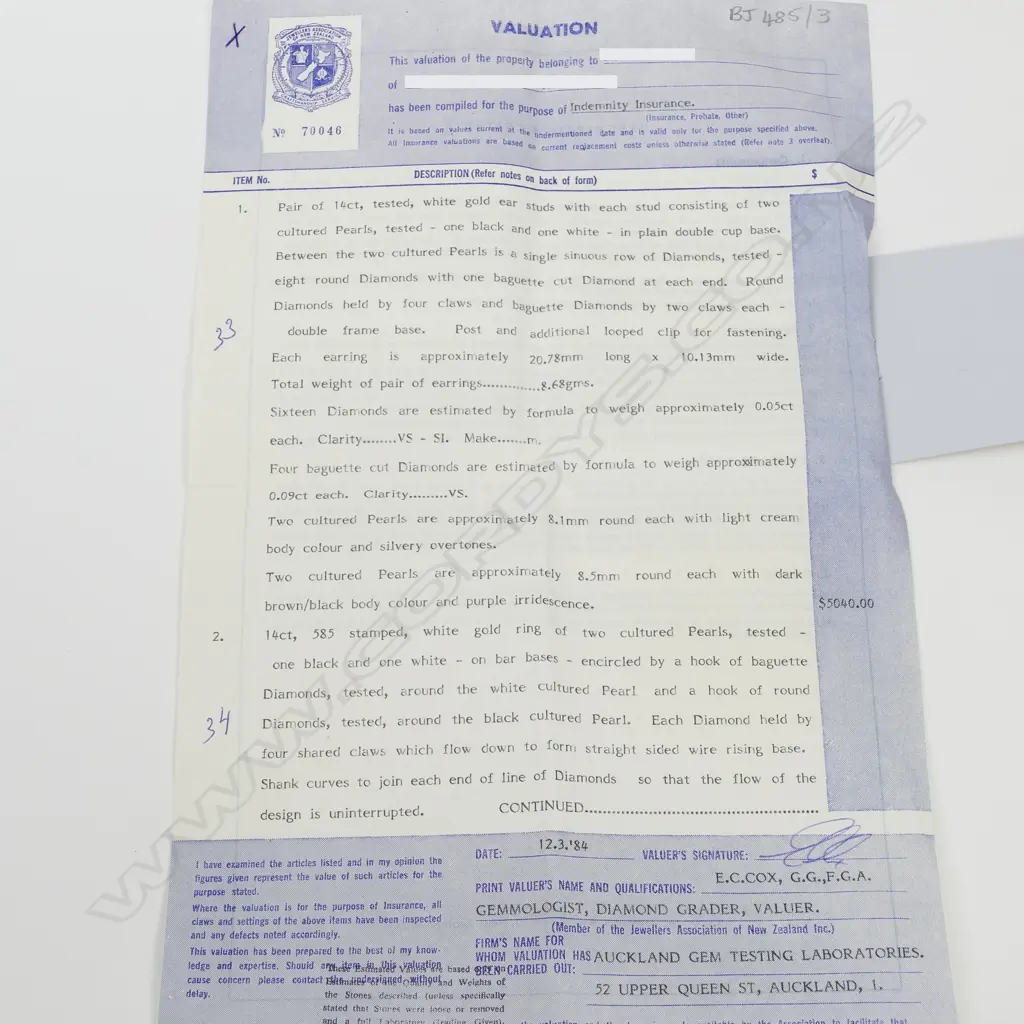 X
VALUATION
BJ 485/3
JEWELLERS ASSOCIATION
OF NEW ZEALAND
Nº 70046
This valuation of the property belonging to
of
has been compiled for the purpose of Indemnity Insurance.
(Insurance, Probate, Other)
It is based on values current at the undermentioned date and is valid only for the purpose specified above.
All Insurance valuations are based on current replacement costs unless otherwise stated (Refer note 3 overleaf).
ITEM No. DESCRIPTION (Refer notes on back of form) $
1. Pair of 14ct, tested, white gold ear studs with each stud consisting of two
cultured Pearls, tested - one black and one white - in plain double cup base.
Between the two cultured Pearls is a single sinuous row of Diamonds, tested -
eight round Diamonds with one baguette cut Diamond at each end. Round
Diamonds held by four claws and baguette Diamonds by two claws each -
33 double frame base. Post and additional looped clip for fastening.
Each earring is approximately 20.78mm long x 10.13mm wide.
Total weight of pair of earrings.............8.68gms.
Sixteen Diamonds are estimated by formula to weigh approximately 0.05ct
each. Clarity........VS - SI. Make.......m.
Four baguette cut Diamonds are estimated by formula to weigh approximately
0.09ct each. Clarity.........VS.
Two cultured Pearls are approximately 8.1mm round each with light cream
body colour and silvery overtones.
Two cultured Pearls are approximately 8.5mm round each with dark
brown/black body colour and purple irridescence. $5040.00
2. 14ct, 585 stamped, white gold ring of two cultured Pearls, tested -
one black and one white - on bar bases - encircled by a hook of baguette
Diamonds, tested, around the white cultured Pearl and a hook of round
34 Diamonds, tested, around the black cultured Pearl. Each Diamond held by
four shared claws which flow down to form straight sided wire rising base.
Shank curves to join each end of line of Diamonds so that the flow of the
design is uninterrupted. CONTINUED..................................................
I have examined the articles listed and in my opinion the
figures given represent the value of such articles for the
purpose stated.
Where the valuation is for the purpose of Insurance, all
claws and settings of the above items have been inspected
and any defects noted accordingly.
This valuation has been prepared to the best of my know-
ledge and expertise. Should any item in this valuation
cause concern please contact the undersigned without
delay.
These Estimated Values are based only on
Estimates of the Quality and Weights of
the Stones described (unless specifically
stated that Stones were loose or removed
and a full Laboratory Grading Given).
DATE: 12.3.'84 VALUER'S SIGNATURE:
PRINT VALUER'S NAME AND QUALIFICATIONS: E.C.COX, G.G.,F.G.A.
GEMMOLOGIST, DIAMOND GRADER, VALUER.
(Member of the Jewellers Association of New Zealand Inc.)
FIRM'S NAME FOR
WHOM VALUATION HAS AUCKLAND GEM TESTING LABORATORIES.
BEEN CARRIED OUT:
52 UPPER QUEEN ST, AUCKLAND, 1.
by the Association to facilitate that
WWW.CORDYS.CO.NZ